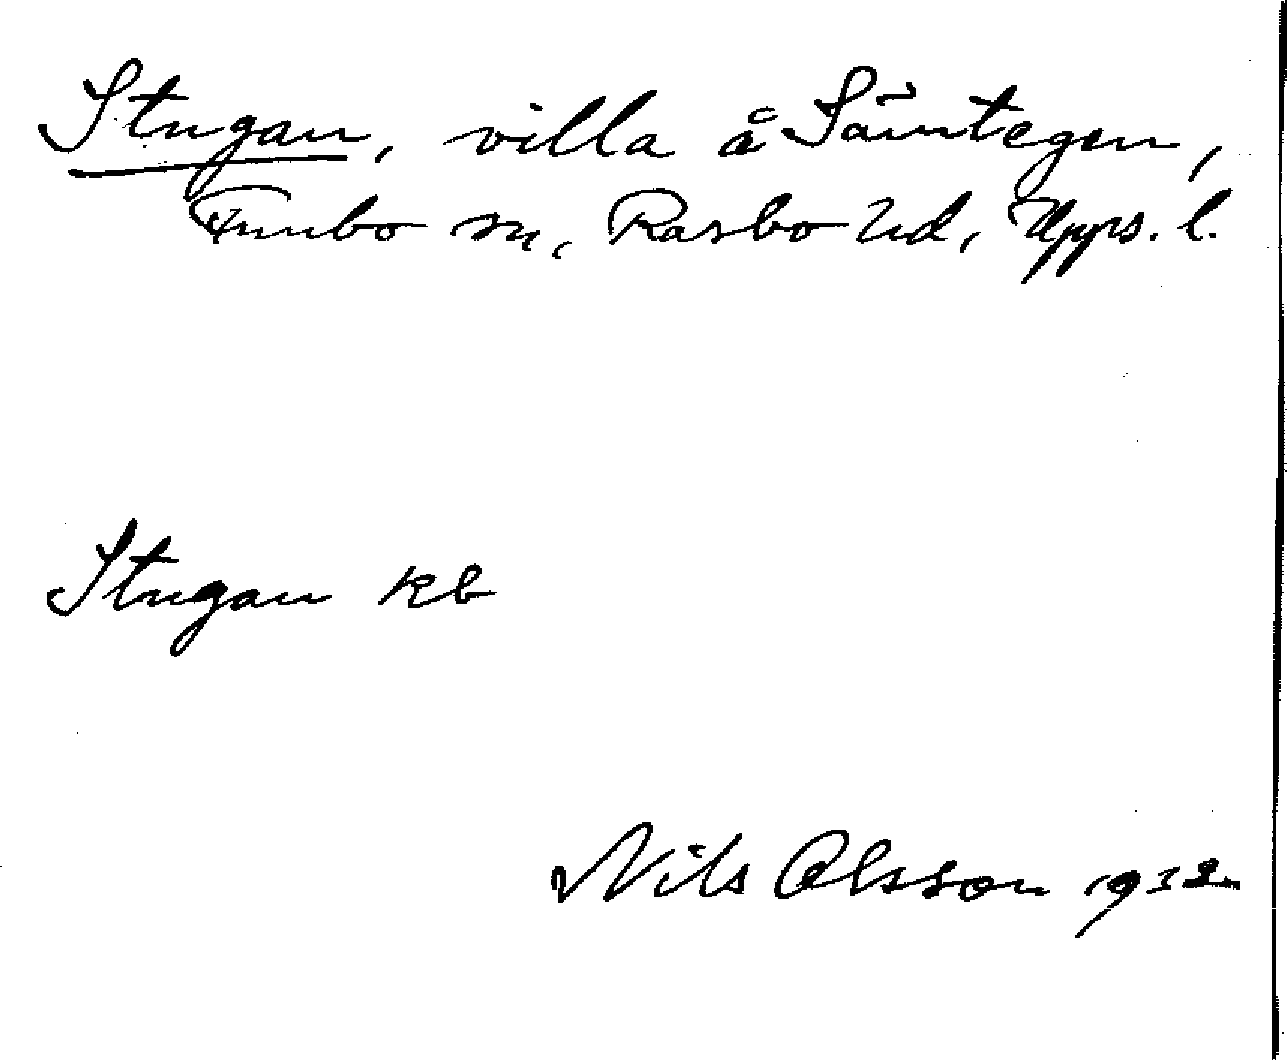 Stugan, villa å Sämtegen,
Funbo sn, Rasbo hd, Upps. l.
Stugan kb
Nils Olsson 1932